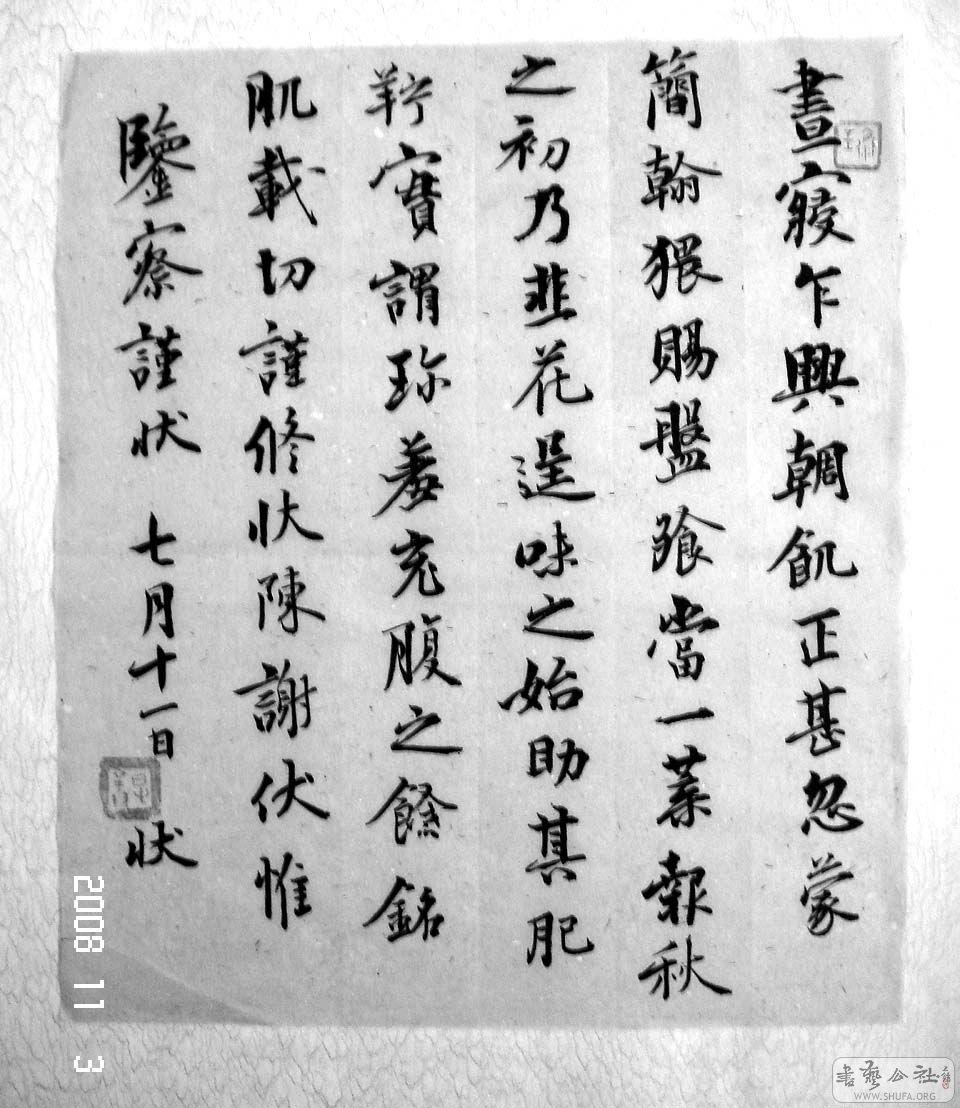 晝寢乍興輖飢正甚忽蒙
簡翰猥賜盤飧當一葉報秋
之初乃韭花逞味之始助其肥
羜實謂珍羞充腹之餘銘
肌載切謹修狀陳謝伏惟
鑒察謹狀 七月十一日 狀
2008 11 3
書藝公社
WWW.SHUFA.ORG